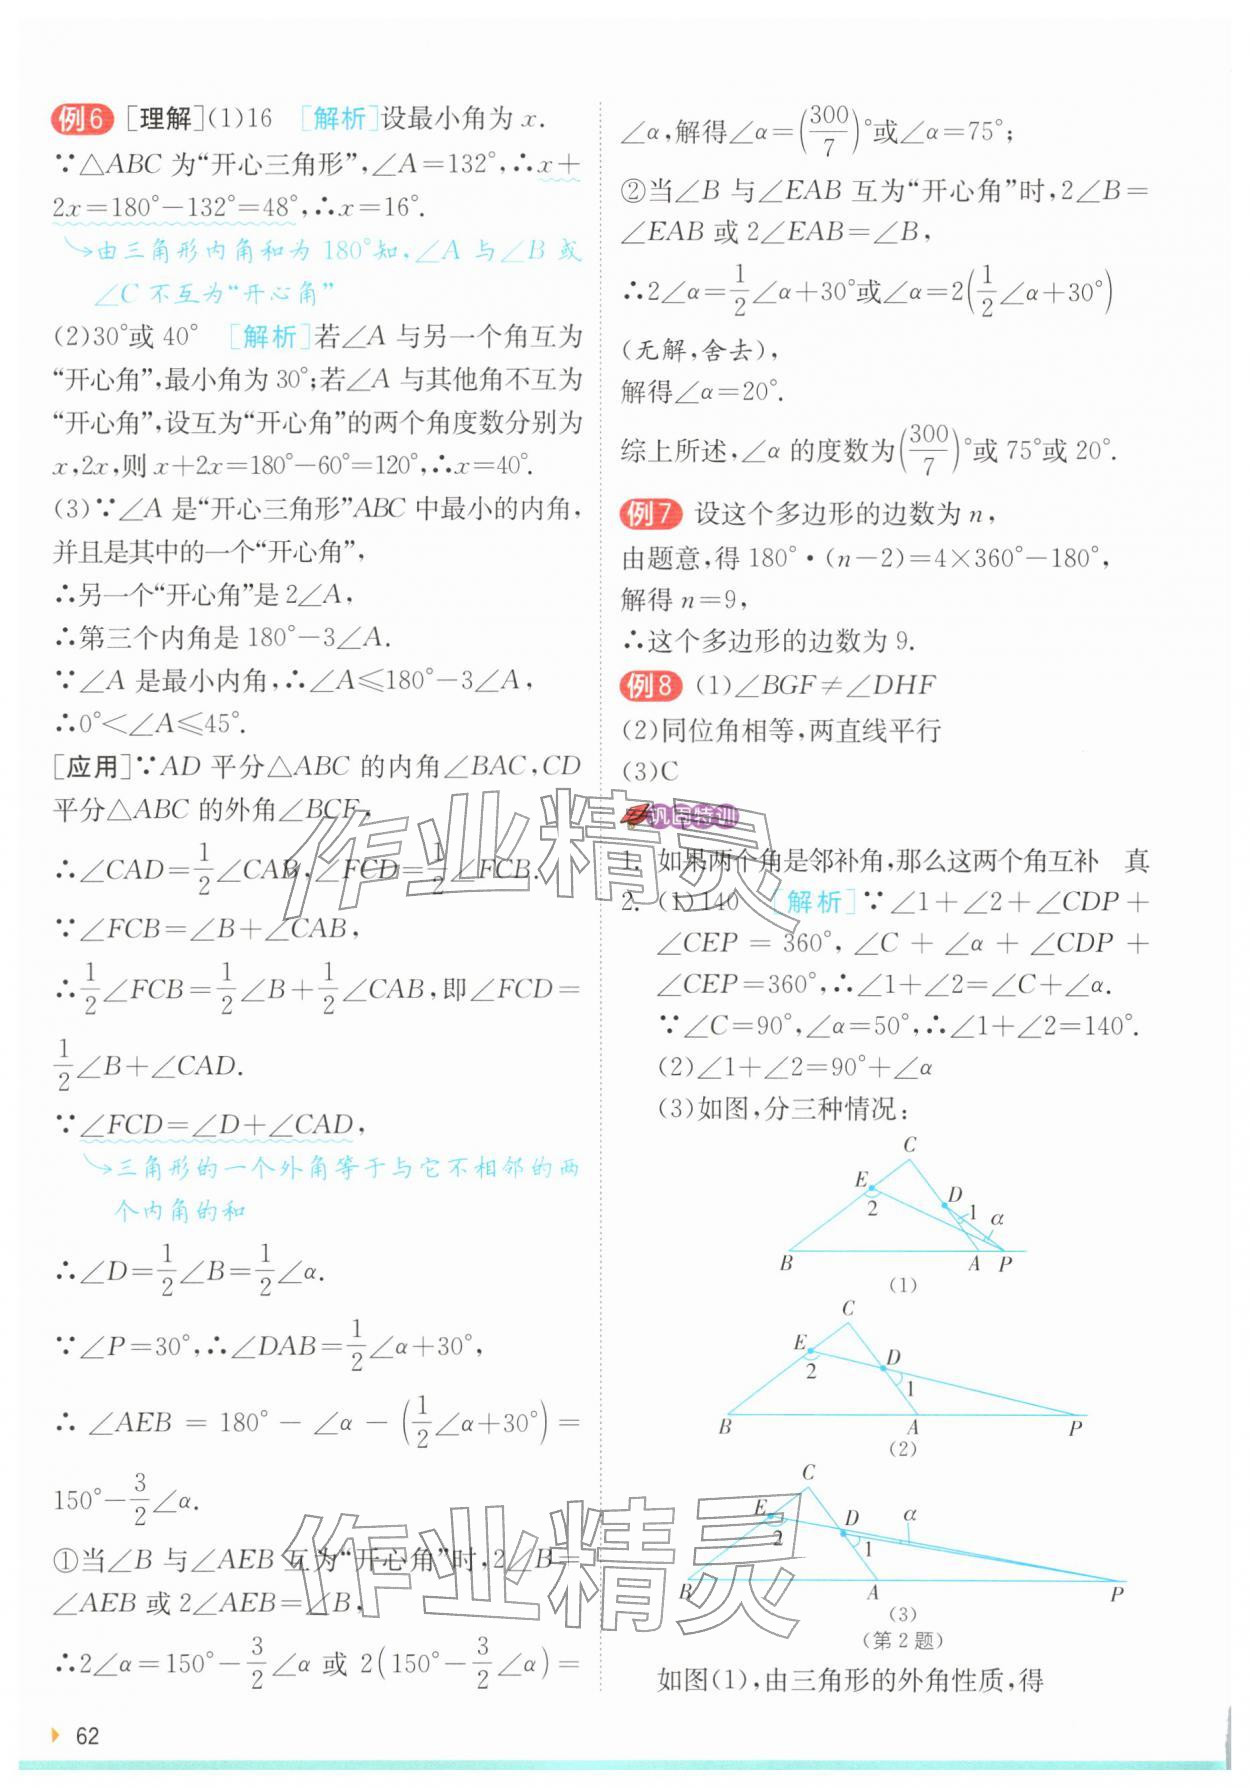 例6 [理解](1)16 [解析]设最小角为 x.
∵△ABC 为“开心三角形”,∠A=132°,∴x+
2x=180°-132°=48°,∴x=16°.
由三角形内角和为 180°知,∠A 与∠B 或
∠C 不互为“开心角”
(2)30°或 40° [解析]若∠A 与另一个角互为
“开心角”,最小角为 30°;若∠A 与其他角不互为
“开心角”,设互为“开心角”的两个角度数分别为
x,2x,则 x+2x=180°-60°=120°,∴x=40°.
(3)∵∠A 是“开心三角形”ABC 中最小的内角,
并且是其中的一个“开心角”,
∴另一个“开心角”是 2∠A,
∴第三个内角是 180°-3∠A.
∵∠A 是最小内角,∴∠A≤180°-3∠A,
∴0°<∠A≤45°.
[应用]∵AD 平分△ABC 的内角∠BAC,CD
平分△ABC 的外角∠BCF,
∴∠CAD=1/2∠CAB,∠FCD=1/2∠FCB.
∵∠FCB=∠B+∠CAB,
∴1/2∠FCB=1/2∠B+1/2∠CAB,即∠FCD=
1/2∠B+∠CAD.
∵∠FCD=∠D+∠CAD,
三角形的一个外角等于与它不相邻的两
个内角的和
∴∠D=1/2∠B=1/2∠α.
∵∠P=30°,∴∠DAB=1/2∠α+30°,
∴∠AEB=180°-∠α-(1/2∠α+30°)=
150°-3/2∠α.
①当∠B 与∠AEB 互为“开心角”时,2∠B=
∠AEB 或 2∠AEB=∠B,
∴2∠α=150°-3/2∠α 或 2(150°-3/2∠α)=
62
∠α,解得∠α=(300/7)°或∠α=75°;
②当∠B 与∠EAB 互为“开心角”时,2∠B=
∠EAB 或 2∠EAB=∠B,
∴2∠α=1/2∠α+30°或∠α=2(1/2∠α+30°)
(无解,舍去),
解得∠α=20°.
综上所述,∠α 的度数为(300/7)°或 75°或 20°.
例7 设这个多边形的边数为 n,
由题意,得 180°·(n-2)=4×360°-180°,
解得 n=9,
∴这个多边形的边数为 9.
例8 (1)∠BGF≠∠DHF
(2)同位角相等,两直线平行
(3)C
巩固特训
1. 如果两个角是邻补角,那么这两个角互补 真
2. (1)140 [解析]∵∠1+∠2+∠CDP+
∠CEP=360°,∠C+∠α+∠CDP+
∠CEP=360°,∴∠1+∠2=∠C+∠α.
∵∠C=90°,∠α=50°,∴∠1+∠2=140°.
(2)∠1+∠2=90°+∠α
(3)如图,分三种情况:
C
E D
2 1 α
B A P
(1)
C
E D
2 1
B A P
(2)
C
E D α
2 1
B A P
(3)
(第 2 题)
如图(1),由三角形的外角性质,得
作业精灵
作业精灵